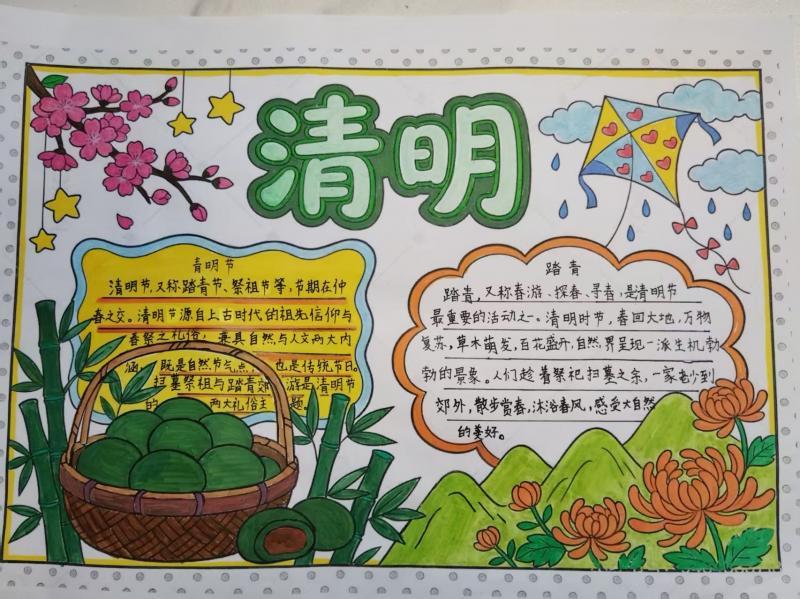 清明
青明节
清明节,又称踏青节、祭祖节等,节期在仲
春之交。清明节源自上古时代的祖先信仰与
春祭之礼俗,兼具自然与人文两大内
涵,既是自然节气点,也是传统节日。
扫墓祭祖与踏青郊游是清明节
的 两大礼俗主题。
踏青
踏青,又称春游、探春、寻春,是清明节
最重要的活动之一。清明时节,春回大地,万物
复苏,草木萌发,百花盛开,自然界呈现一派生机勃
勃的景象。人们趁着祭祀扫墓之余,一家老少到
郊外,散步赏春,沐浴春风,感受大自然
的美好。